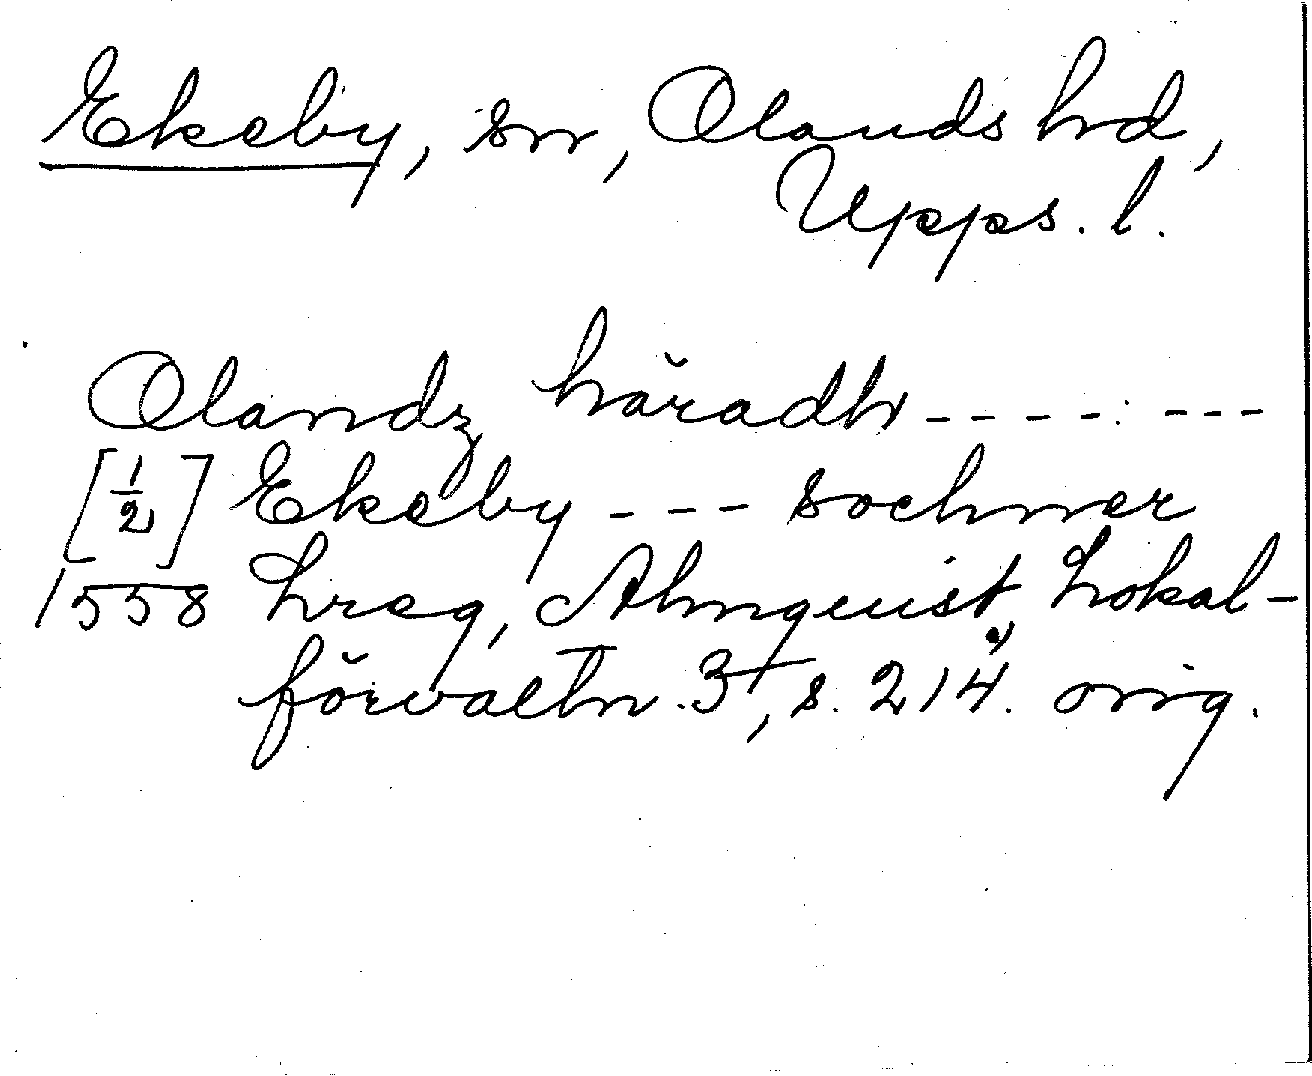 Ekeby, sn, Olands hd,
Upps. l.
Olandz häradh ---- ---
[1/2] Ekeby --- sochner
1558 Lreg, Almquist, Lokal-
förvaltn. 3, s. 214. orig.